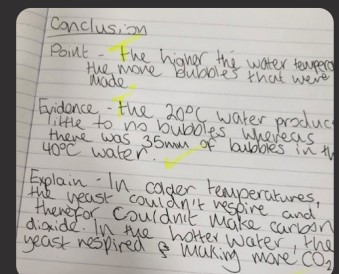 Conclusion
Point - The higher the water tempera
the more bubbles that were
made.
Evidance - the 20°C water produc
little to no bubbles whereas
there was 35mm of bubbles in th
40°C water.
Explain - In colder temperatures,
the yeast couldn't respire and
therefor couldn't make carbon
dioxide. In the hotter water, the
yeast respired & making more CO2